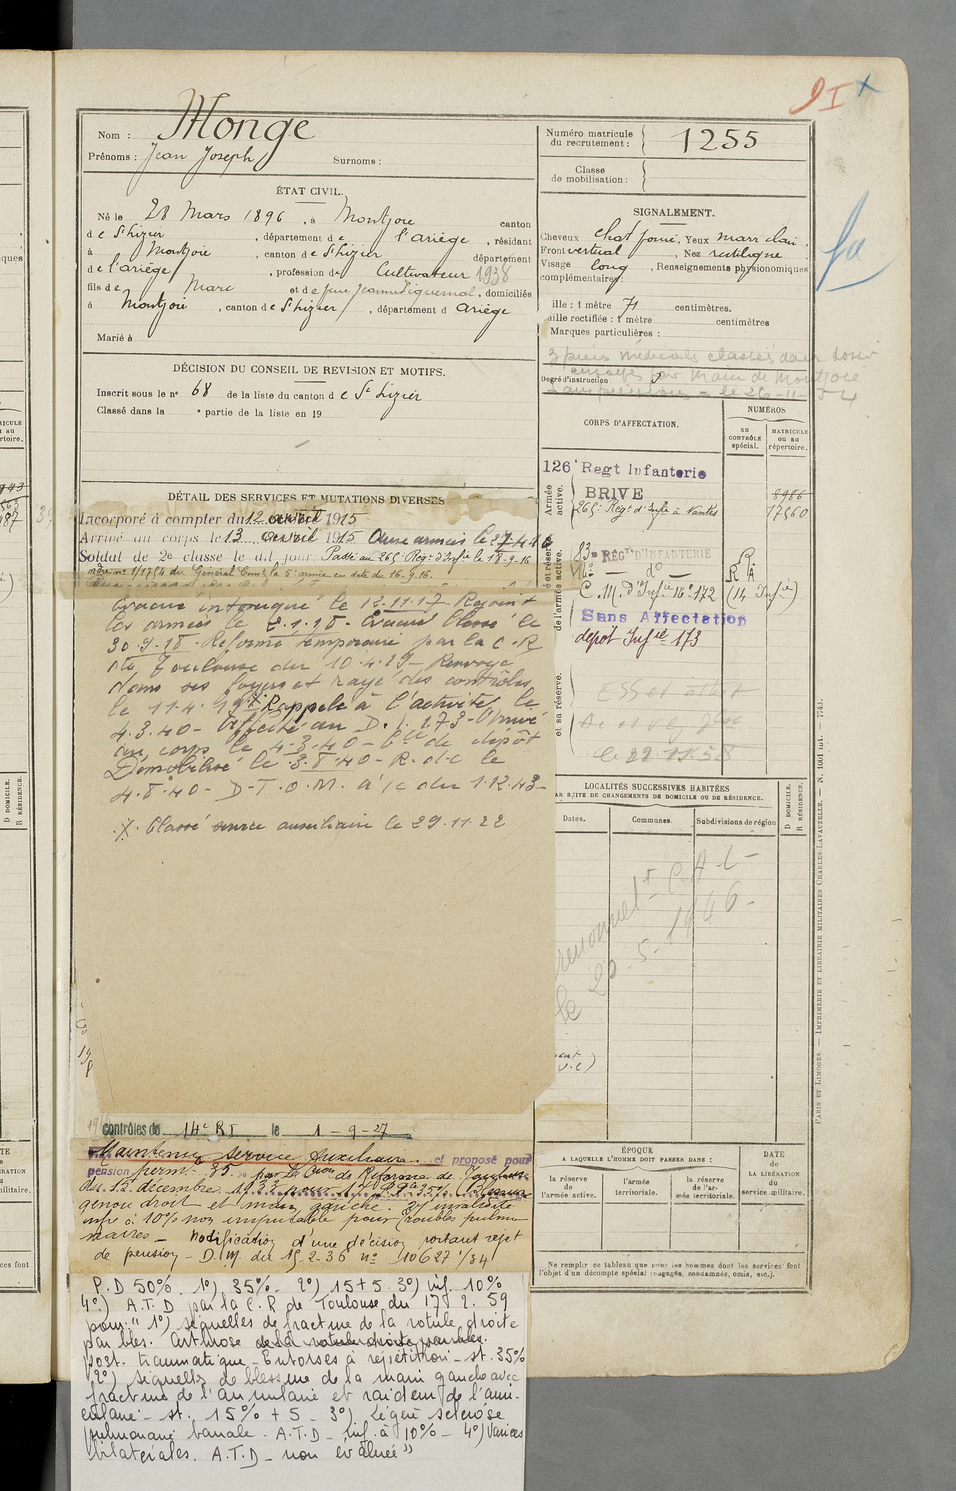 Nom : Monge
Prénoms : Jean Joseph Surnoms :
Numéro matricule
du recrutement : 1255
Classe
de mobilisation :
ÉTAT CIVIL.
Né le 28 Mars 1896, à Montjoie canton
de St Lizier, département de l'Ariège, résidant
à Montjoie, canton de St Lizier département
de l'Ariège, profession de Cultivateur 1938
fils de Marc et de feue Jeanne Piquemal, domiciliés
à Montjoie, canton de St Lizier, département d Ariège
Marié à
SIGNALEMENT.
Cheveux chat foncé, Yeux marr clair,
Front vertical, Nez rectiligne,
Visage long, Renseignements physionomiques
complémentaires:
Taille : 1 mètre 71 centimètres.
Taille rectifiée : 1 mètre centimètres
Marques particulières :
3 pièces médicales classées dans dossier
envoyés par Maire de Montjoie
le 26-11-54
Degré d'instruction 3
DÉCISION DU CONSEIL DE REVISION ET MOTIFS.
Inscrit sous le n° 68 de la liste du canton de St Lizier
Classé dans la e partie de la liste en 19
DÉTAIL DES SERVICES ET MUTATIONS DIVERSES
Incorporé à compter du 12 avril 1915
Arrivé au corps le 13 avril 1915 Aux armées le 27-4-16
Soldat de 2e classe le dit jour Passé au 265e Régt d'Infie le 18-9-16
ordre n° 1/1754 du Général Comt la 5e armée en date du 16-9-16.
Evacué intoxiqué le 12.11.17 Rejoint
les armées le 2.1.18 - Evacué blessé le
30.9.18 - Réformé temporaire par la C.R
de Toulouse du 10.4.19 - Renvoyé
dans ses foyers et rayé des contrôles
le 11.4.19 X Rappelé à l'activité le
4.3.40 - Affecté au D.I. 173 - Arrivé
au corps le 4-3-40 - Cie de dépôt
Démobilisé le 3.8.40 - R.d.c le
4.8.40 - D.T.O.M. à/c du 1.12.43 -
X. Classé service auxiliaire le 29.11.22
contrôles du 14e RI le 1-9-27
Maintenu service Auxiliaire et proposé pour
pension perm. 35 par la Con de Réforme de Toulouse
du 12 décembre 1933 pour
genou droit et main gauche. 2°/ invalidité
infre à 10% non imputable pour troubles pulmo
naires - Notification d'une décision portant rejet
de pension - D.M. du 15-2-36 n° 10627 /34
P.D 50% - 1°) 35% - 2°) 15+5 3°) inf. 10%
4°) A.T.D par la C.R de Toulouse du 17 2.59
pour " 1°) séquelles de fracture de la rotule droite
par bles. arthrose de la rotule droite
post. traumatique - Entorses à répétition - st. 35%
2°) séquelles de blessure de la main gauche avec
fracture de l'annulaire et raideur de l'auri-
culaire - st. 15% + 5 - 3°) Légère sclérose
pulmonaire banale. A.T.D - inf. à 10% - 4°) Varices
bilatérales. A.T.D - non évaluée"
CORPS D'AFFECTATION.
NUMÉROS
au
CONTRÔLE
spécial.
MATRICULE
ou au
répertoire.
Armée
active.
126e Regt Infanterie
BRIVE 8986
265e Régt d'Infie à Nantes 17560
83e RÉGt D'INFANTERIE
14e do
C.M. d'Infie 16e n° 172 (14 Infie)
Sans Affectation
dépôt Infie 173
et sa réserve.
le 22 11 58
LOCALITÉS SUCCESSIVES HABITÉES
PAR SUITE DE CHANGEMENTS DE DOMICILE OU DE RÉSIDENCE.
Dates.
Communes.
Subdivisions de région
D DOMICILE.
R RÉSIDENCE.
le 20-5-1946-
ÉPOQUE
A LAQUELLE L'HOMME DOIT PASSER DANS :
la réserve
de
l'armée active.
l'armée
territoriale.
la réserve
de l'ar-
mée territoriale.
DATE
de
LA LIBÉRATION
du
service militaire.
Ne remplir ce tableau que pour les hommes dont les services font
l'objet d'un décompte spécial (engagés, condamnés, omis, etc.).
PARIS ET LIMOGES. — IMPRIMERIE ET LIBRAIRIE MILITAIRES CHARLES-LAVAUZELLE.